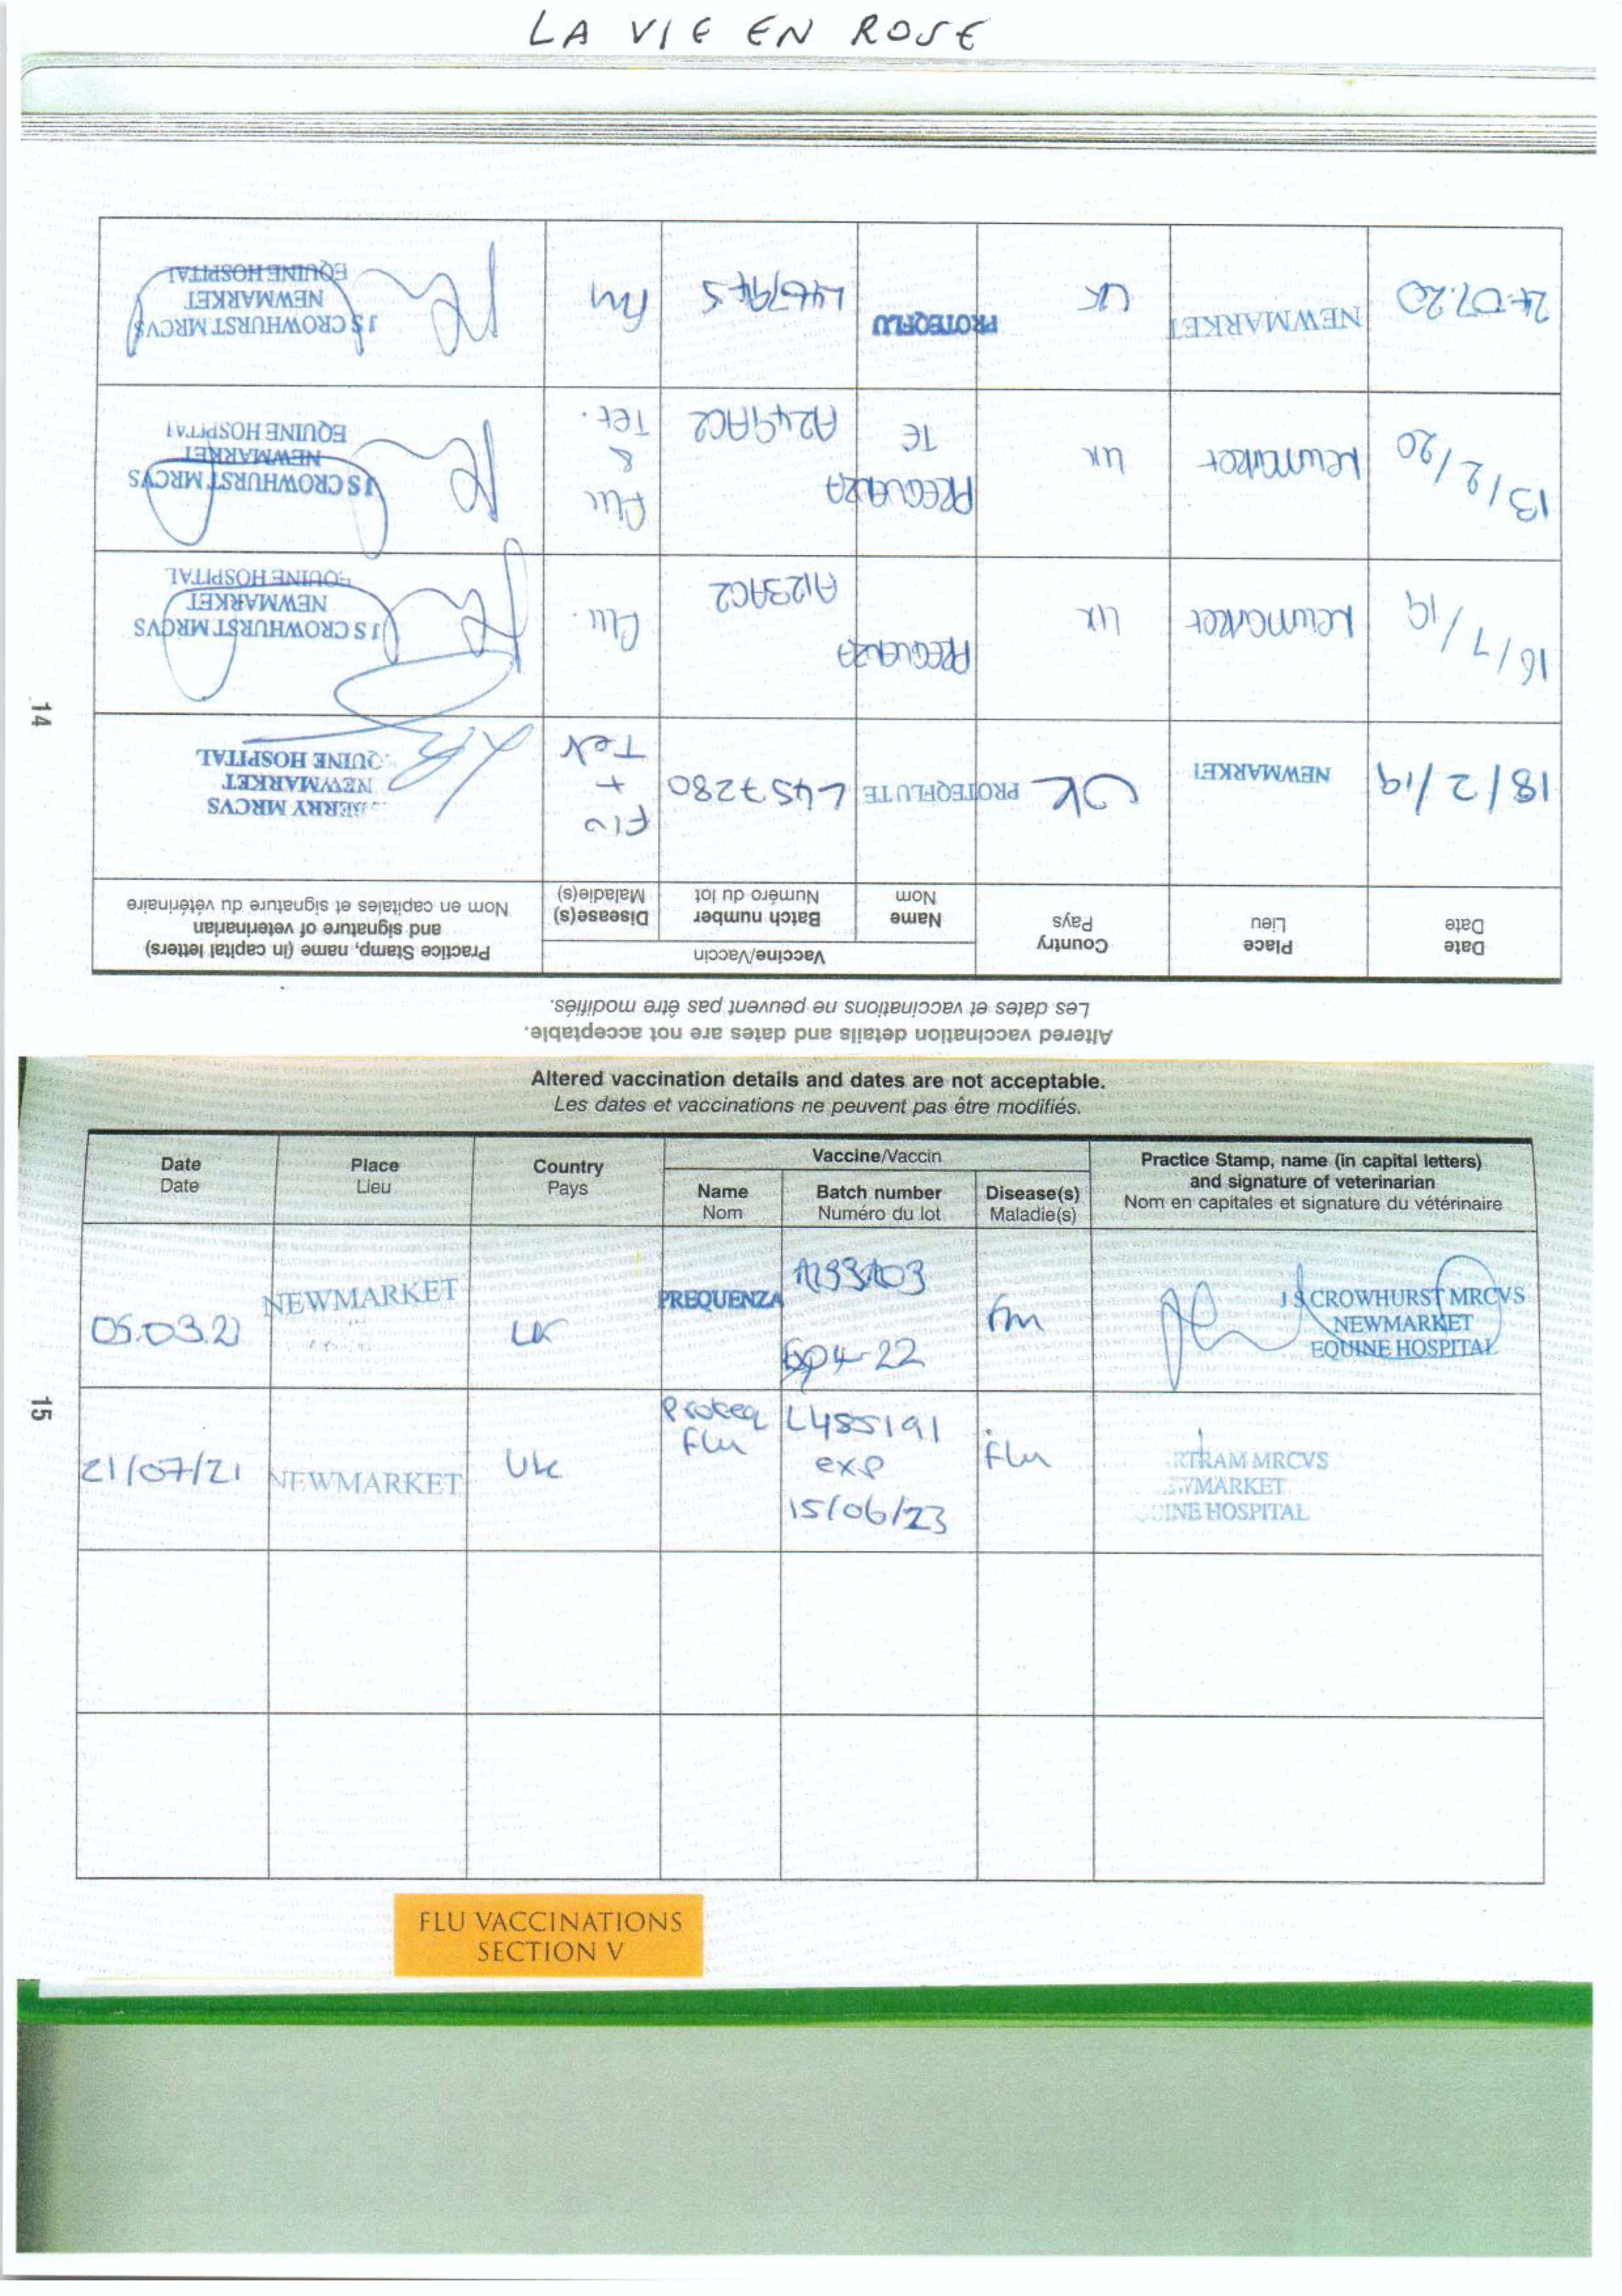 LA VIE EN ROSE
14
Altered vaccination details and dates are not acceptable.
Les dates et vaccinations ne peuvent pas être modifiés.
Date
Date
Place
Lieu
Country
Pays
Vaccine/Vaccin
Name
Nom
Batch number
Numéro du lot
Disease(s)
Maladie(s)
Practice Stamp, name (in capital letters)
and signature of veterinarian
Nom en capitales et signature du vétérinaire
18/2/19
NEWMARKET
UK
PROTEQFLUTE
L457280
Flu
+
Tet
BERRY MRCVS
NEWMARKET
QUINE HOSPITAL
16/7/19
Newmarket
UK
PREQUENZA
A123AC2
Flu.
J S CROWHURST MRCVS
NEWMARKET
EQUINE HOSPITAL
13/2/20
Newmarket
UK
PREQUENZA
TE
A249AC2
Flu
&
Tet.
J S CROWHURST MRCVS
NEWMARKET
EQUINE HOSPITAL
NEWMARKET
UK
PROTEQFLU
Flu
J S CROWHURST MRCVS
NEWMARKET
EQUINE HOSPITAL
15
Altered vaccination details and dates are not acceptable.
Les dates et vaccinations ne peuvent pas être modifiés.
Date
Date
Place
Lieu
Country
Pays
Vaccine/Vaccin
Name
Nom
Batch number
Numéro du lot
Disease(s)
Maladie(s)
Practice Stamp, name (in capital letters)
and signature of veterinarian
Nom en capitales et signature du vétérinaire
05.03.21
NEWMARKET
UK
PREQUENZA
Flu
J S CROWHURST MRCVS
NEWMARKET
EQUINE HOSPITAL
21/07/21
NEWMARKET
UK
Proteq
Flu
L485191
exp
15/06/23
Flu
RTRAM MRCVS
WMARKET
INE HOSPITAL
FLU VACCINATIONS
SECTION V